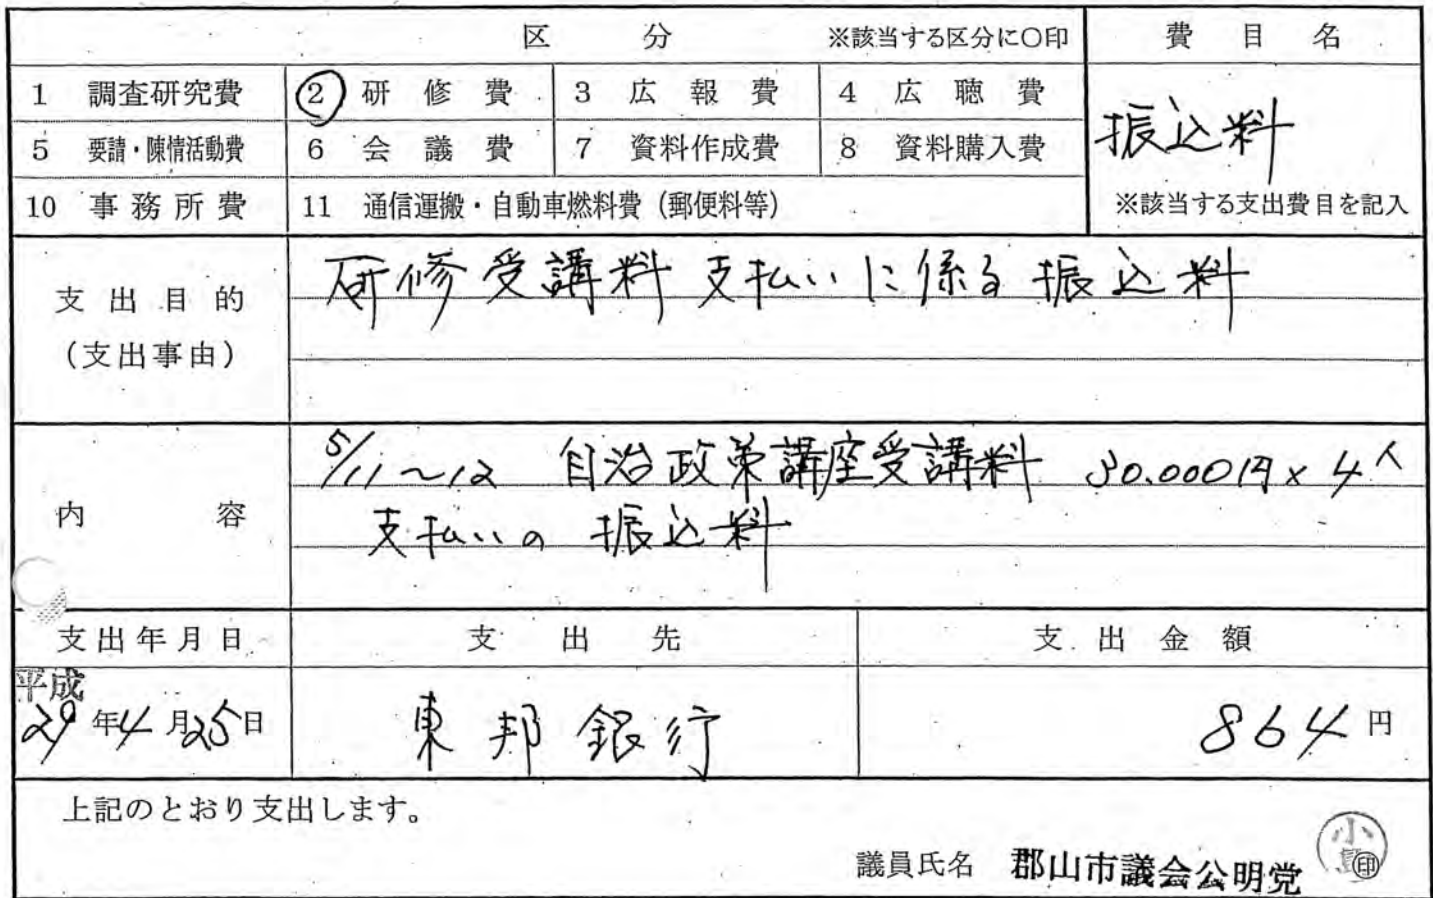 区 分 ※該当する区分に○印 費 目 名
1 調査研究費 ② 研 修 費 3 広 報 費 4 広 聴 費
振込料
5 要請・陳情活動費 6 会 議 費 7 資料作成費 8 資料購入費
10 事 務 所 費 11 通信運搬・自動車燃料費（郵便料等） ※該当する支出費目を記入
支 出 目 的
（支出事由）
研修受講料支払いに係る振込料
内 容
5/11～12 自治政策講座受講料 30.000円×4人
支払いの振込料
支出年月日 支 出 先 支 出 金 額
平成
29年4月25日 東邦銀行 864円
上記のとおり支出します。
議員氏名 郡山市議会公明党 ㊞